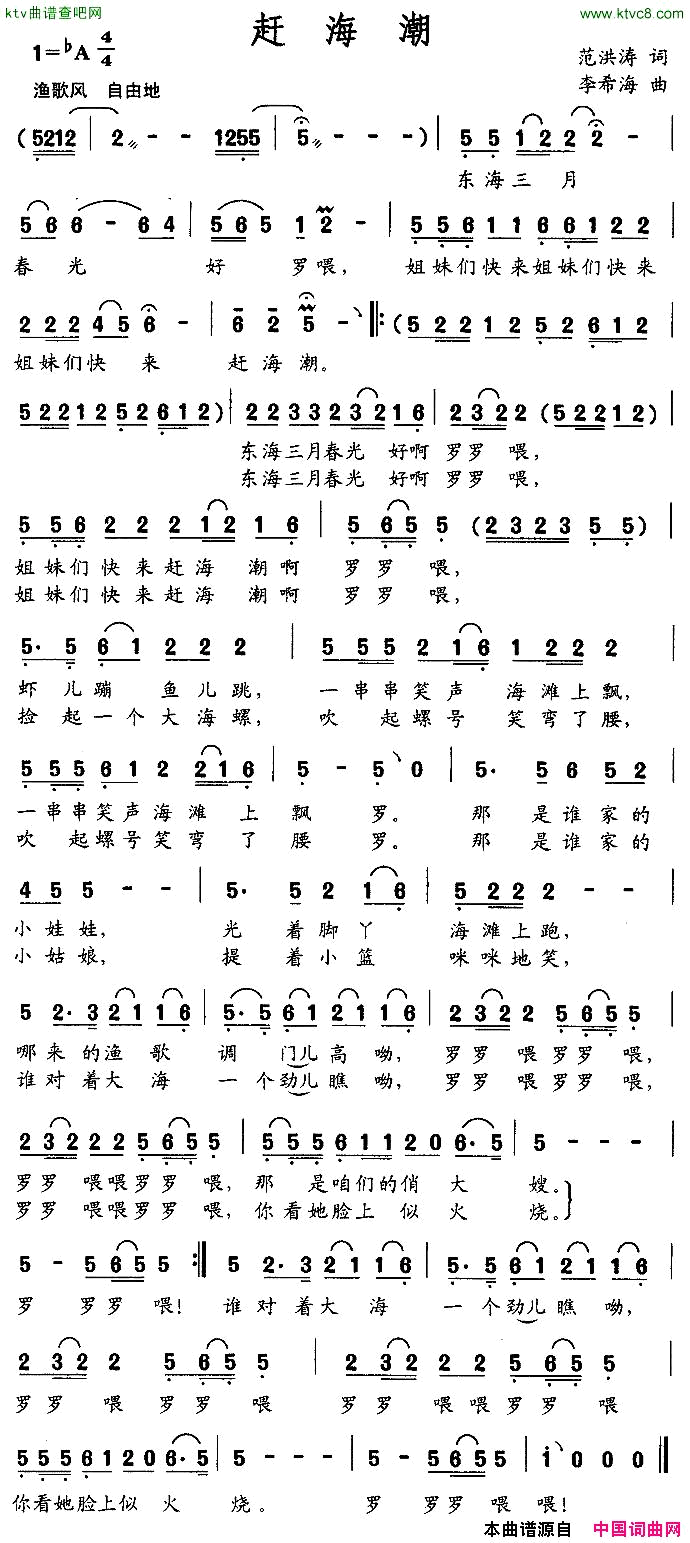 ktv曲谱查吧网
www.ktvc8.com
赶海潮
1=♭A 4/4
范洪涛 词
李希海 曲
渔歌风 自由地
(5212 | 2 - - 1255 | 5 - -) | 5 5 122 2 -
东海三 月
5 6 6 - 6 4 | 5 6 5 1 2 - | 5 5 6 1 1 5 5 6 1 2 2
春光 好 罗喂, 姐妹们快来姐妹们快来
2 2 2 4 5 6 - | 6 2 5 - ‖: (5 2 2 1 2 5 2 6 1 2
姐妹们快来 赶海潮。
5 2 2 1 2 5 2 6 1 2) | 2 2 3 3 2 3 2 1 6 | 2 3 2 2 (5 2 2 1 2)
东海三月春光 好啊 罗罗 喂,
东海三月春光 好啊 罗罗 喂,
5 5 6 2 2 2 1 2 1 6 | 5 6 5 5 (2 3 2 3 5 5) |
姐妹们快来赶海 潮啊 罗罗 喂,
姐妹们快来赶海 潮啊 罗罗 喂,
5· 5 6 1 2 2 2 | 5 5 5 2 1 6 1 2 2 2 |
虾儿蹦 鱼儿跳, 一串串笑声 海滩上飘,
捡起一个大海螺, 吹 起螺号 笑弯了腰,
5 5 5 6 1 2 2 1 6 | 5 - 5 0 | 5· 5 6 5 2 |
一串串笑声海滩 上 飘 罗。 那 是谁家的
吹 起螺号笑弯 了 腰 罗。 那 是谁家的
4 5 5 - - | 5· 5 2 1 6 | 5 2 2 2 - - |
小娃娃, 光 着脚丫 海滩上跑,
小姑娘, 提 着小篮 咪咪地笑,
5 2· 3 2 1 1 6 | 5· 5 6 1 2 1 1 6 | 2 3 2 2 5 6 5 5 |
哪来的渔歌 调 门儿高呦, 罗罗 喂罗罗 喂,
谁对着大海 一个劲儿瞧呦, 罗罗 喂罗罗 喂,
2 3 2 2 2 5 6 5 5 | 5 5 5 6 1 1 2 0 6· 5 | 5 - - -
罗罗 喂喂罗罗 喂, 那 是咱们的俏 大 嫂。
罗罗 喂喂罗罗 喂, 你看她脸上 似 火 烧。
5 - 5 6 5 5 :‖ 5 2· 3 2 1 1 6 | 5· 5 6 1 2 1 1 6 |
罗 罗罗 喂! 谁对着大海 一个劲儿瞧呦,
2 3 2 2 5 6 5 5 | 2 3 2 2 2 5 6 5 5 |
罗罗 喂罗罗 喂 罗罗 喂喂罗罗 喂
5 5 5 6 1 2 0 6· 5 | 5 - - - | 5 - - 5 6 5 5 | i 0 0 0 ‖
你看她脸上似 火 烧。 罗 罗罗 喂 喂!
本曲谱源自 中国词曲网